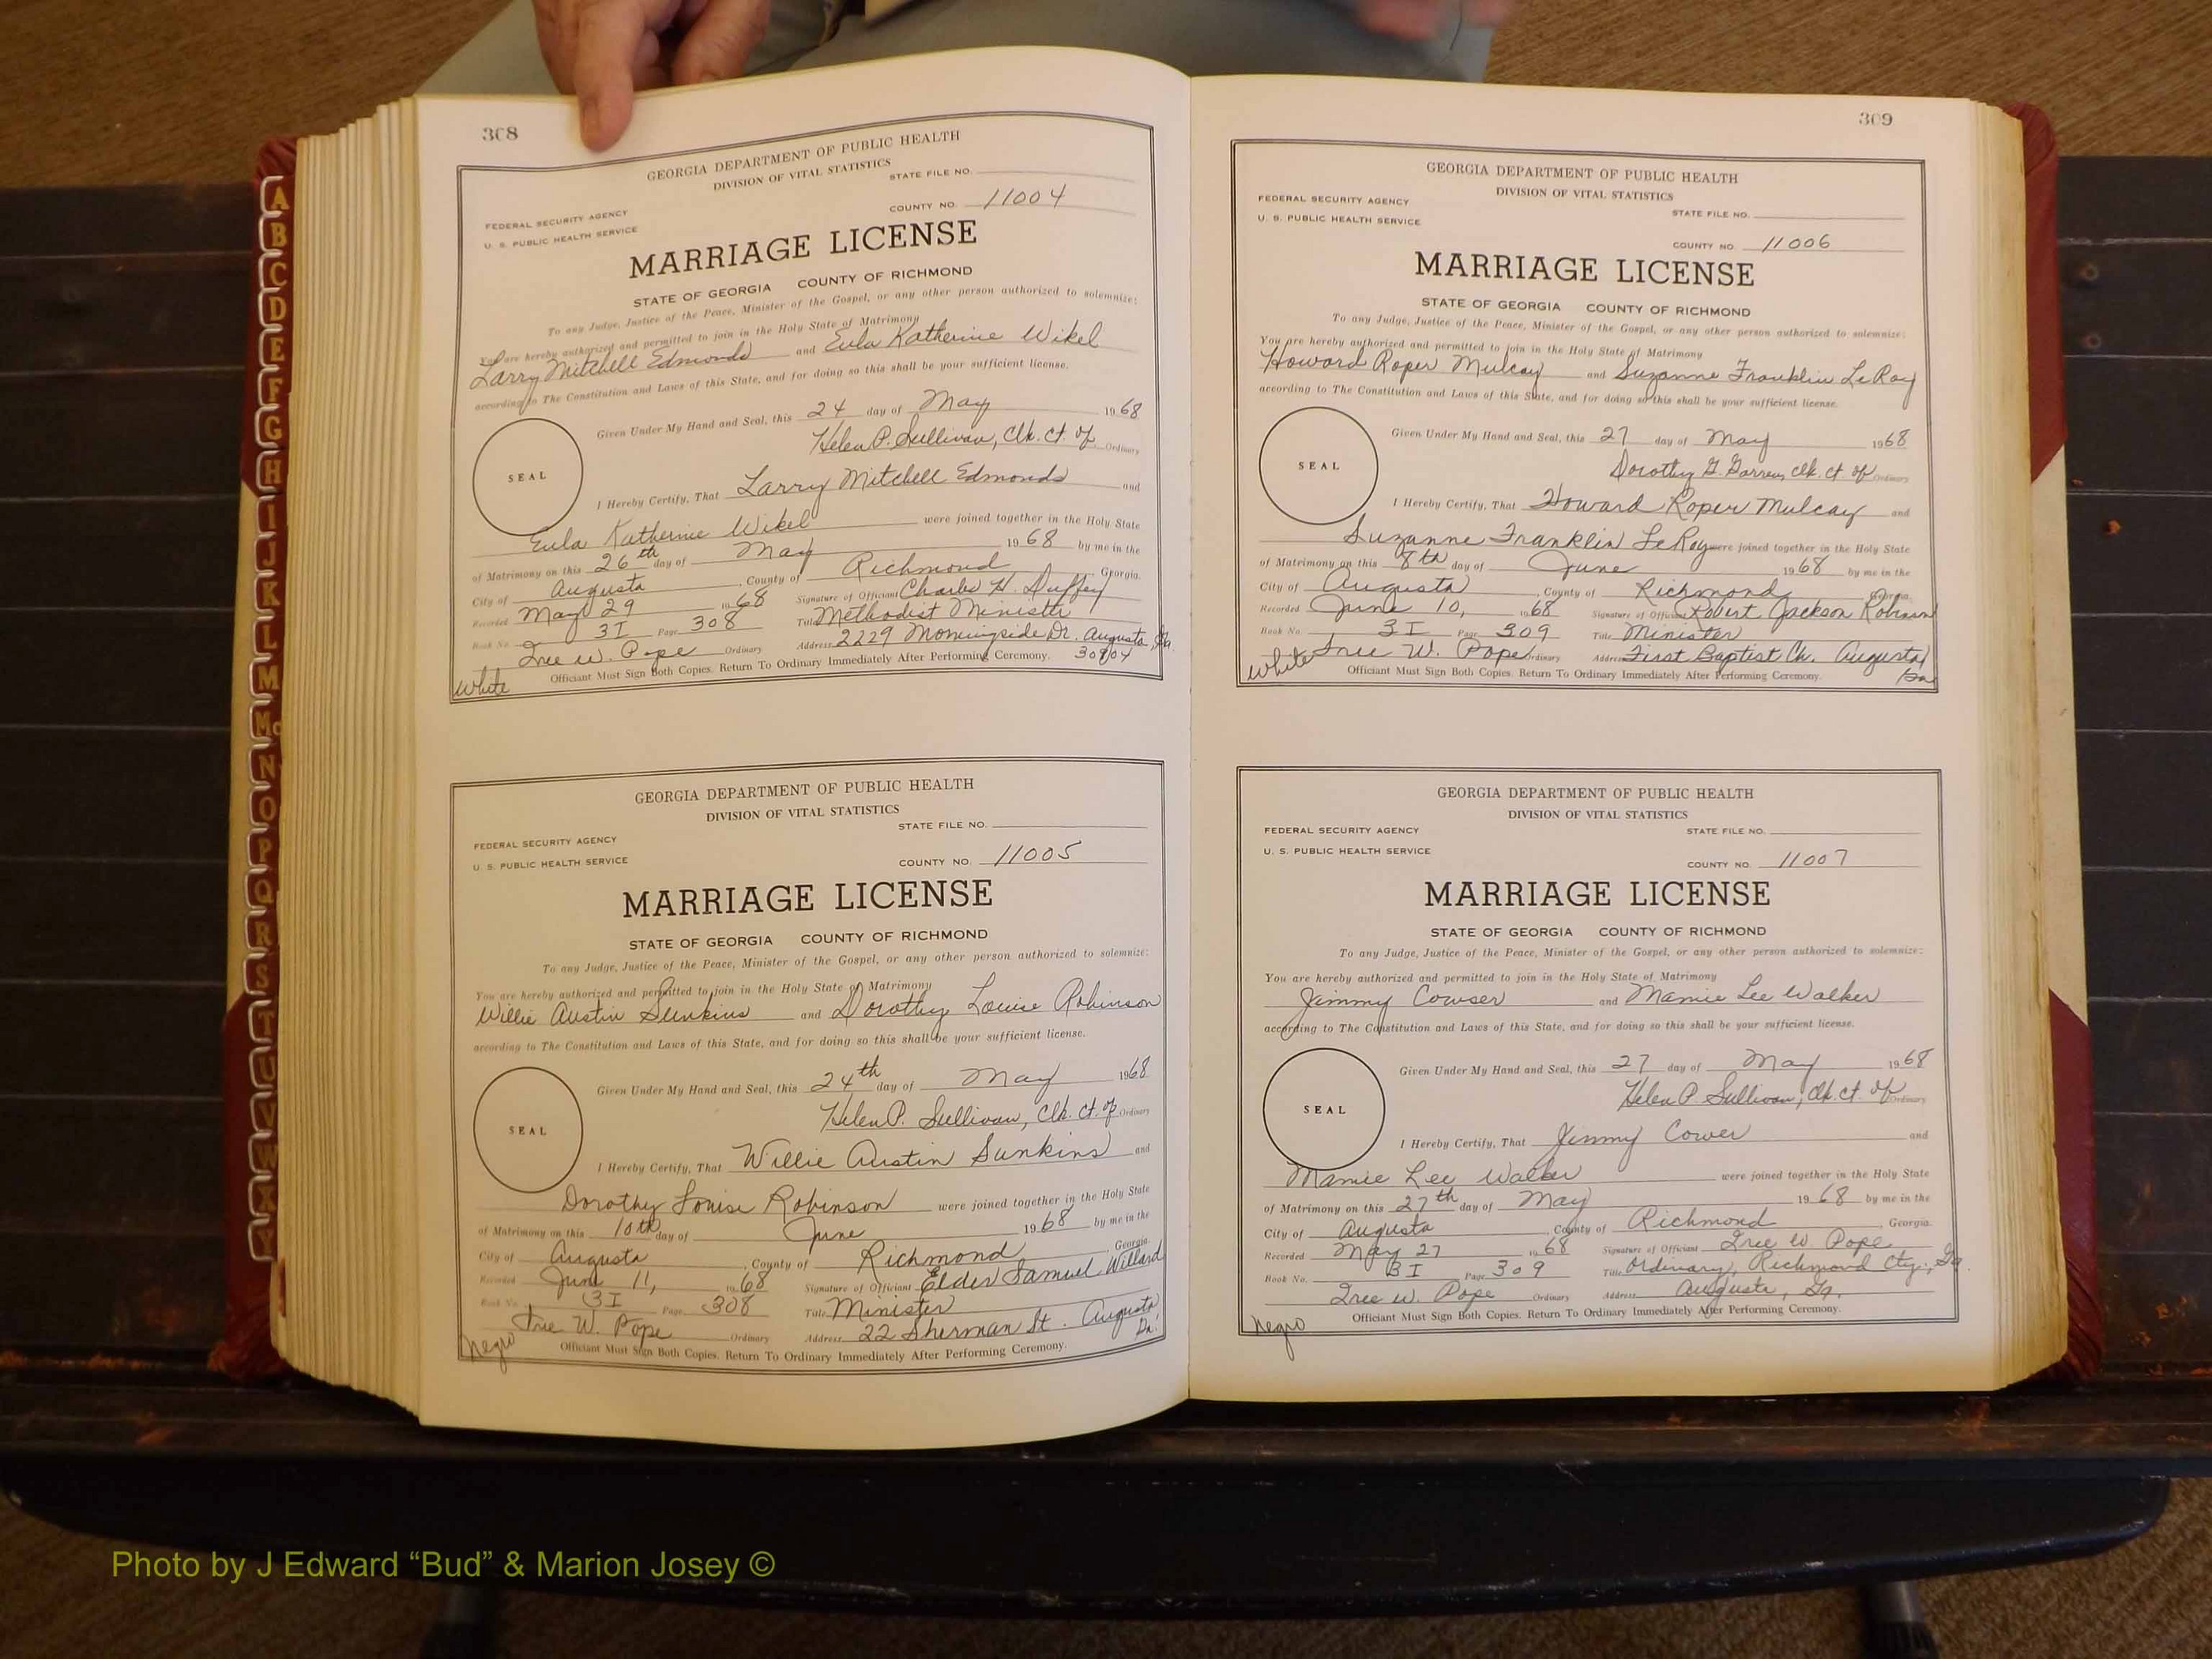 A
B
C
D
E
F
G
H
I
J
K
L
M
Mc
N
O
P
Q
R
S
T
U
V
W
X
Y
308
GEORGIA DEPARTMENT OF PUBLIC HEALTH
DIVISION OF VITAL STATISTICS
STATE FILE NO.
FEDERAL SECURITY AGENCY
U. S. PUBLIC HEALTH SERVICE
COUNTY NO. 11004
MARRIAGE LICENSE
STATE OF GEORGIA COUNTY OF RICHMOND
To any Judge, Justice of the Peace, Minister of the Gospel, or any other person authorized to solemnize:
You are hereby authorized and permitted to join in the Holy State of Matrimony
Larry Mitchell Edmonds and Eula Katherine Wikel
according to The Constitution and Laws of this State, and for doing so this shall be your sufficient license.
Given Under My Hand and Seal, this 24 day of May 1968
Helen P. Sullivan, Clk. Ct. of Ordinary
SEAL
I Hereby Certify, That Larry Mitchell Edmonds and
Eula Katherine Wikel were joined together in the Holy State
of Matrimony on this 26th day of May 1968 by me in the
City of Augusta, County of Richmond, Georgia.
Recorded May 29 1968 Signature of Officiant Charles H. Duffey
Book No. 3I Page 308 Title Methodist Minister
Tree W. Pope Ordinary Address 2229 Morningside Dr. Augusta, Ga.
30904
White Officiant Must Sign Both Copies. Return To Ordinary Immediately After Performing Ceremony.
GEORGIA DEPARTMENT OF PUBLIC HEALTH
DIVISION OF VITAL STATISTICS
STATE FILE NO.
FEDERAL SECURITY AGENCY
U. S. PUBLIC HEALTH SERVICE
COUNTY NO. 11005
MARRIAGE LICENSE
STATE OF GEORGIA COUNTY OF RICHMOND
To any Judge, Justice of the Peace, Minister of the Gospel, or any other person authorized to solemnize:
You are hereby authorized and permitted to join in the Holy State of Matrimony
Willie Austin Sunkins and Dorothy Louise Robinson
according to The Constitution and Laws of this State, and for doing so this shall be your sufficient license.
Given Under My Hand and Seal, this 24th day of May 1968
Helen P. Sullivan, Clk. Ct. of Ordinary
SEAL
I Hereby Certify, That Willie Austin Sunkins and
Dorothy Louise Robinson were joined together in the Holy State
of Matrimony on this 10th day of June 1968 by me in the
City of Augusta, County of Richmond, Georgia.
Recorded June 11, 1968 Signature of Officiant Elder Samuel Willard
Book No. 3I Page 308 Title Minister
Tree W. Pope Ordinary Address 22 Sherman St. Augusta Ga.
Negro Officiant Must Sign Both Copies. Return To Ordinary Immediately After Performing Ceremony.
309
GEORGIA DEPARTMENT OF PUBLIC HEALTH
DIVISION OF VITAL STATISTICS
FEDERAL SECURITY AGENCY
STATE FILE NO.
U. S. PUBLIC HEALTH SERVICE
COUNTY NO. 11006
MARRIAGE LICENSE
STATE OF GEORGIA COUNTY OF RICHMOND
To any Judge, Justice of the Peace, Minister of the Gospel, or any other person authorized to solemnize:
You are hereby authorized and permitted to join in the Holy State of Matrimony
Howard Roper Mulcay and Suzanne Franklin LeRoy
according to The Constitution and Laws of this State, and for doing so this shall be your sufficient license.
Given Under My Hand and Seal, this 27 day of May 1968
Dorothy G. Clk. Ct. of Ordinary
SEAL
I Hereby Certify, That Howard Roper Mulcay and
Suzanne Franklin LeRoy were joined together in the Holy State
of Matrimony on this 8th day of June 1968 by me in the
City of Augusta, County of Richmond, Georgia.
Recorded June 10, 1968 Signature of Officiant Robert Jackson Robinson
Book No. 3I Page 309 Title Minister
Tree W. Pope Ordinary Address First Baptist Ch. Augusta Ga
White Officiant Must Sign Both Copies. Return To Ordinary Immediately After Performing Ceremony.
GEORGIA DEPARTMENT OF PUBLIC HEALTH
DIVISION OF VITAL STATISTICS
FEDERAL SECURITY AGENCY
STATE FILE NO.
U. S. PUBLIC HEALTH SERVICE
COUNTY NO. 11007
MARRIAGE LICENSE
STATE OF GEORGIA COUNTY OF RICHMOND
To any Judge, Justice of the Peace, Minister of the Gospel, or any other person authorized to solemnize:
You are hereby authorized and permitted to join in the Holy State of Matrimony
Jimmy Cowser and Mamie Lee Walker
according to The Constitution and Laws of this State, and for doing so this shall be your sufficient license.
Given Under My Hand and Seal, this 27 day of May 1968
Helen P. Sullivan, Clk. Ct. of Ordinary
SEAL
I Hereby Certify, That Jimmy Cower and
Mamie Lee Walker were joined together in the Holy State
of Matrimony on this 27th day of May 1968 by me in the
City of Augusta, County of Richmond, Georgia.
Recorded May 27 1968 Signature of Officiant Tree W. Pope
Book No. 3I Page 309 Title Ordinary, Richmond Cty., Ga.
Tree W. Pope Ordinary Address Augusta, Ga.
Negro Officiant Must Sign Both Copies. Return To Ordinary Immediately After Performing Ceremony.
Photo by J Edward “Bud” & Marion Josey ©